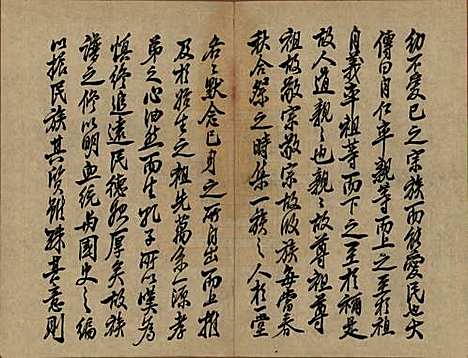 不愛己之宗族而能愛民也大
傳曰自仁率親等而上之至於祖
自義率祖等而下之至於禰是
故人道親々也親々故尊祖尊
祖故敬宗敬宗故收族每當春
秋合祭之時集一族之人於堂
各々默念己身之所自出而上推
及於始生之祖先萬系一源孝
弟之心油然而生孔子所以嘆為
慎終追遠民德歸厚矣故族
譜之修以明血統与國史之編
以振民族其質雖殊其意則